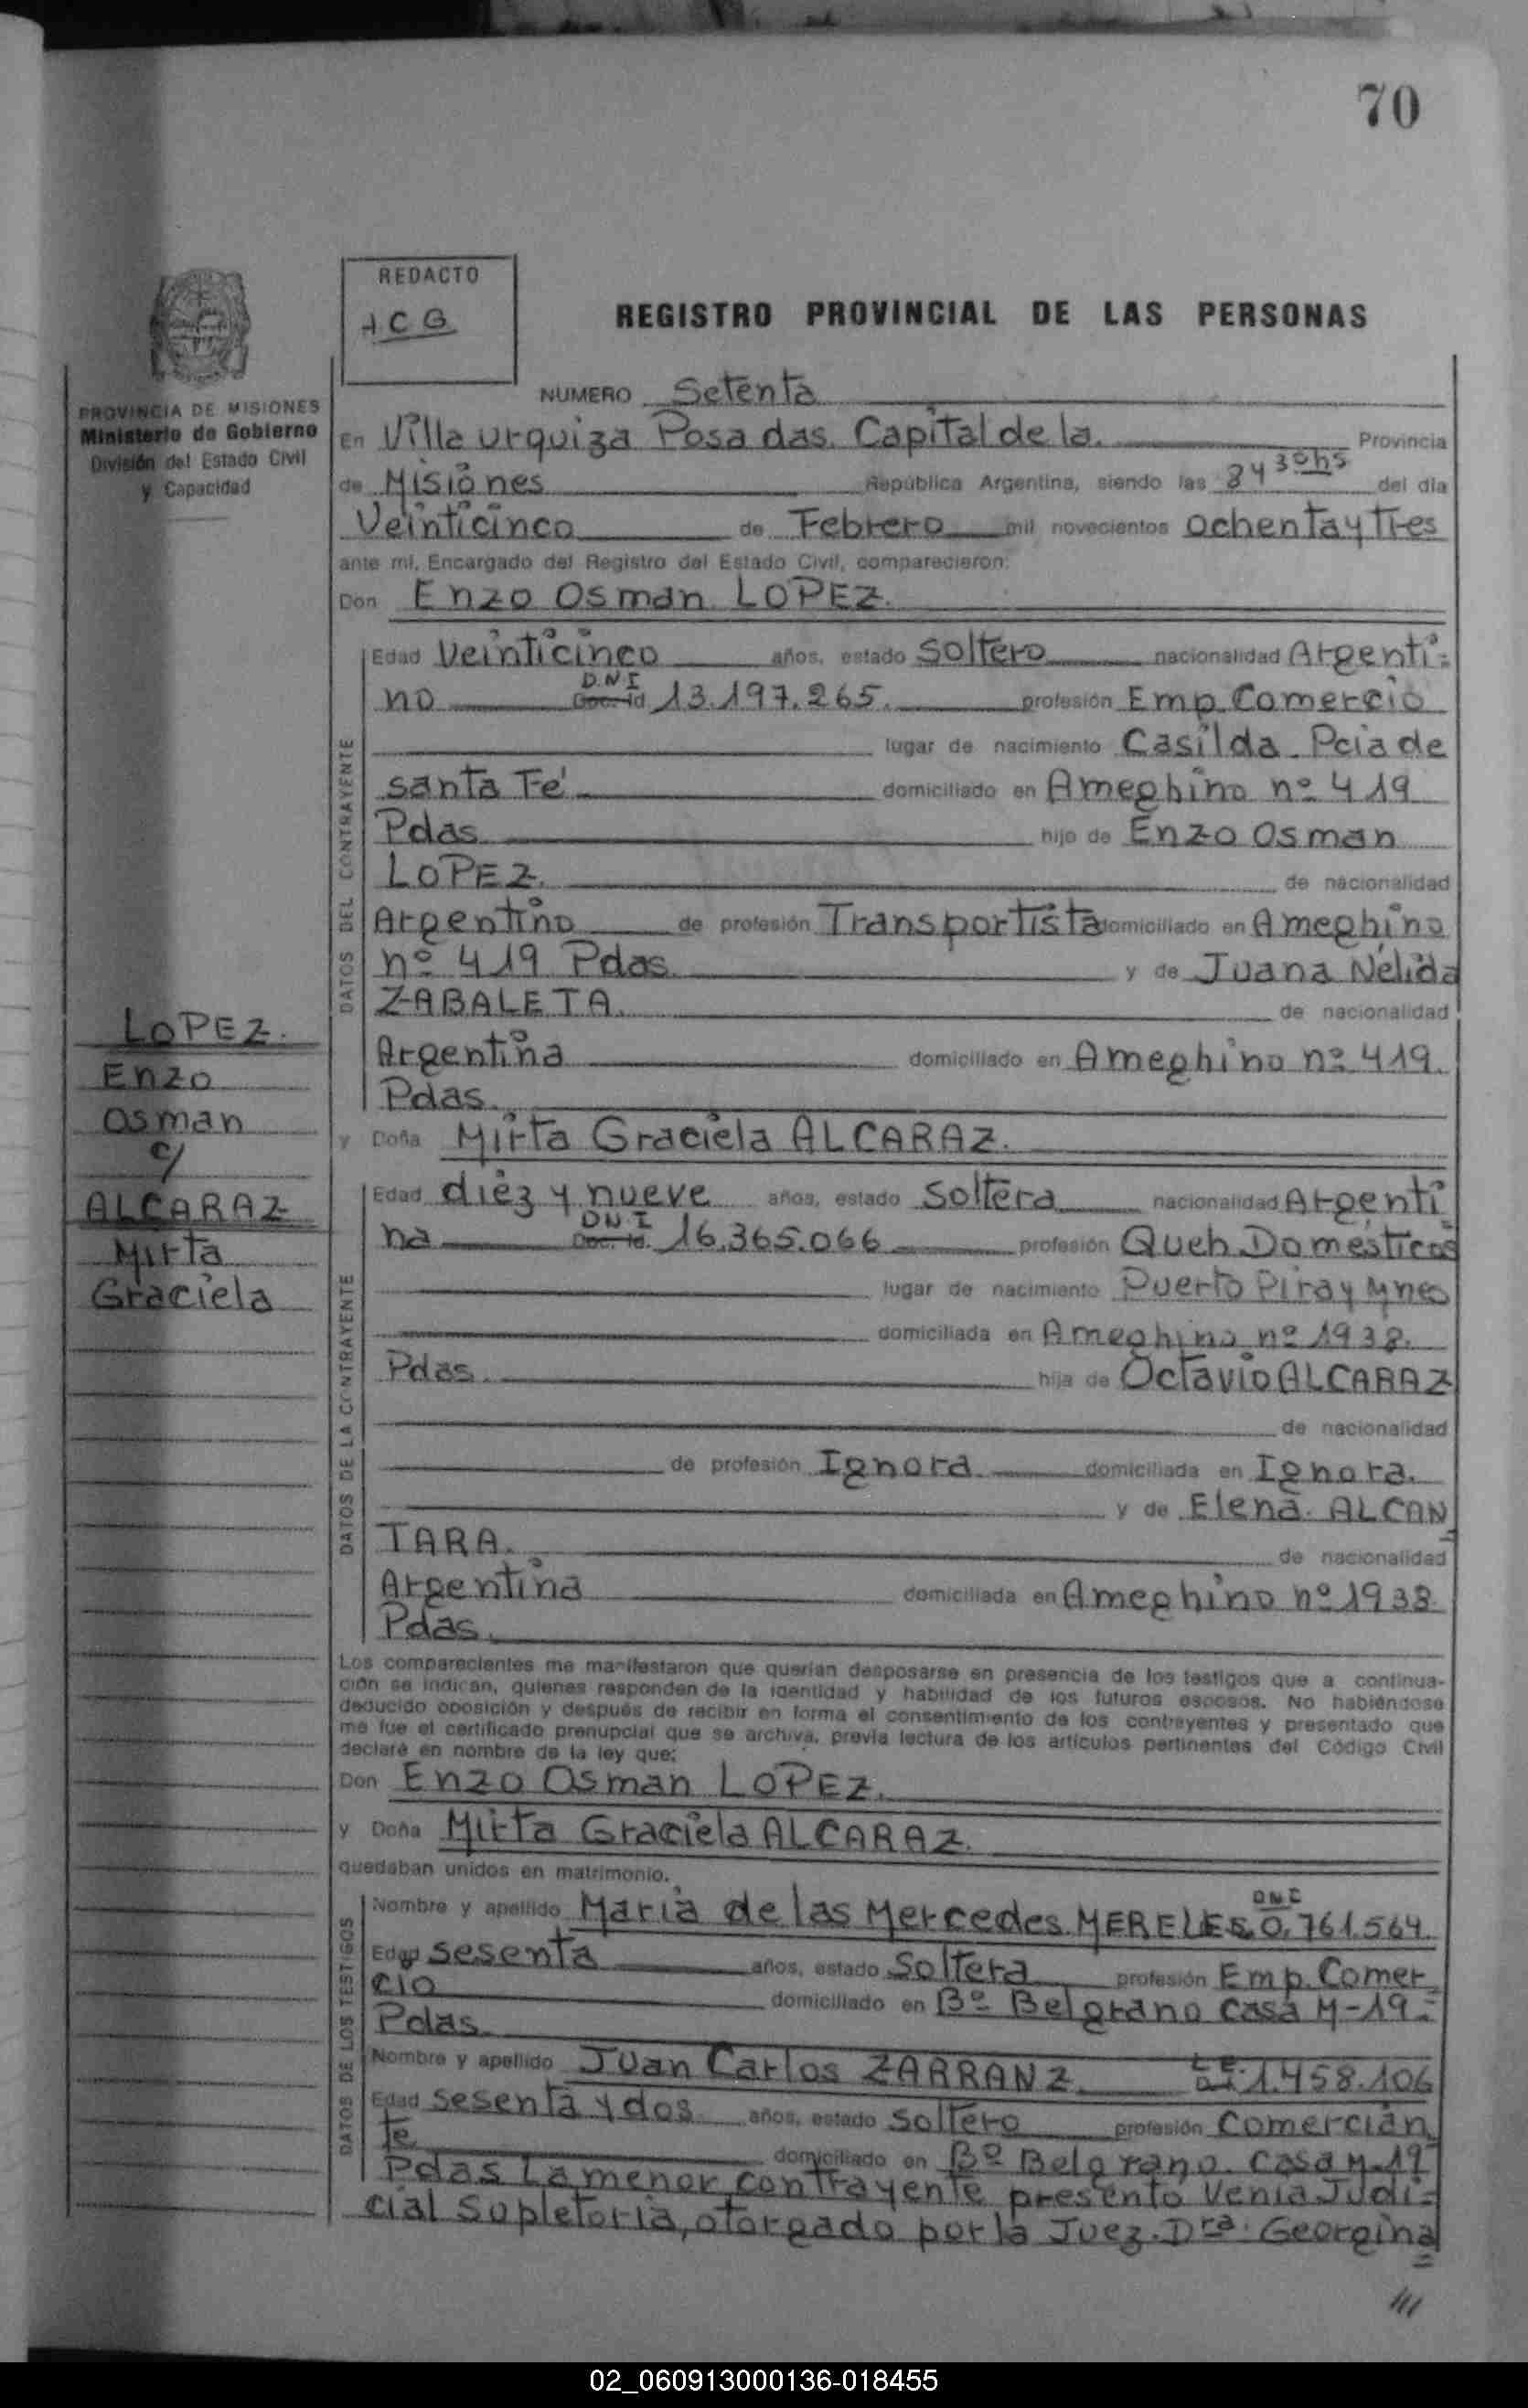 70
REDACTO
ACG
REGISTRO PROVINCIAL DE LAS PERSONAS
PROVINCIA DE MISIONES
Ministerio de Gobierno
División del Estado Civil
y Capacidad
NUMERO Setenta
En Villa Urquiza Posadas. Capital de la. Provincia
de Misiones República Argentina, siendo las 8 y 30hs del día
Veinticinco de Febrero mil novecientos ochenta y tres
ante mí, Encargado del Registro del Estado Civil, comparecieron:
Don Enzo Osman LOPEZ.
DATOS DEL CONTRAYENTE
Edad Veinticinco años, estado Soltero nacionalidad Argenti=
no D.N.I Doc. Id 13.197.265. profesión Emp Comercio
lugar de nacimiento Casilda Pcia de
Santa Fé domiciliado en Ameghino nº 419
Pdas hijo de Enzo Osman
LOPEZ. de nacionalidad
Argentino de profesión Transportista domiciliado en Ameghino
nº 419 Pdas y de Juana Nélida
ZABALETA. de nacionalidad
Argentina domiciliado en Ameghino nº 419.
Pdas.
LOPEZ.
Enzo
Osman
c/
ALCARAZ
Mirta
Graciela
y Doña Mirta Graciela ALCARAZ.
DATOS DE LA CONTRAYENTE
Edad diez y nueve años, estado Soltera nacionalidad Argenti
na DN.I Doc. Id. 16.365.066 profesión Queh Domésticos
lugar de nacimiento Puerto Piray Mnes
domiciliada en Ameghino nº 1938.
Pdas. hija de Octavio ALCARAZ
de nacionalidad
de profesión Ignora domiciliada en Ignora.
y de Elena. ALCAN
TARA. de nacionalidad
Argentina domiciliada en Ameghino nº 1938
Pdas.
Los comparecientes me manifestaron que querían desposarse en presencia de los testigos que a continua-
ción se indican, quienes responden de la identidad y habilidad de los futuros esposos. No habiéndose
deducido oposición y después de recibir en forma el consentimiento de los contrayentes y presentado que
me fue el certificado prenupcial que se archiva, previa lectura de los artículos pertinentes del Código Civil
declaré en nombre de la ley que:
Don Enzo Osman LOPEZ.
y Doña Mirta Graciela ALCARAZ.
quedaban unidos en matrimonio.
DATOS DE LOS TESTIGOS
Nombre y apellido Maria de las Mercedes MERELES DNI 0.761.564.
Edad Sesenta años, estado Soltera profesión Emp. Comer
cio domiciliado en Bº Belgrano casa M-19.=
Pdas
Nombre y apellido Juan Carlos ZARRANZ L.E. 1.458.106
Edad Sesenta y dos años, estado Soltero profesión Comercian
te domiciliado en Bº Belgrano. Casa M-19
Pdas La menor contrayente presentó Venia Judi=
cial Supletoria, otorgado por la Juez. Dra. Georgina
=
///
02_060913000136-018455